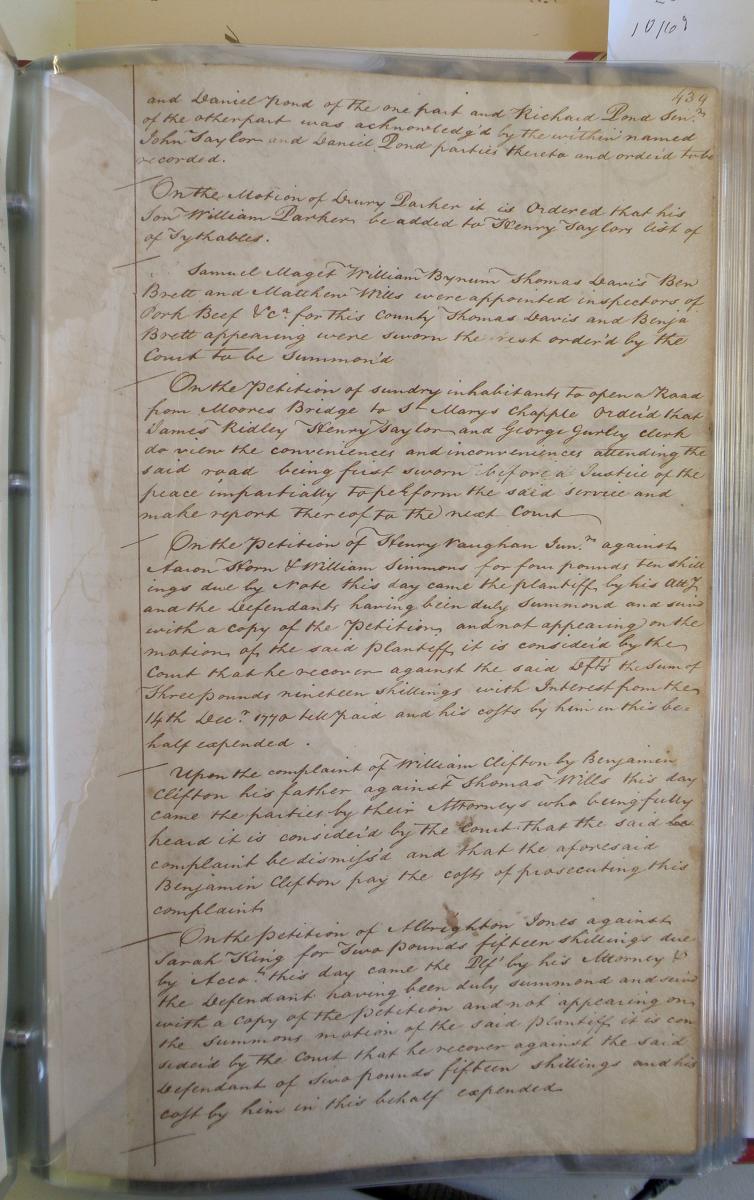 10/69
439
and Daniel Pond of the one part and Richard Pond Senr.
of the other part was acknowledg'd by the within named
John Taylor and Daniel Pond parties thereto and order'd to be
recorded.
On the Motion of Drury Parker it is Ordered that his
Son William Parker be added to Henry Taylors list of
of Tythables.
Samuel Maget William Bynum Thomas Davis Ben
Brett and Matthew Wills were appointed inspectors of
Pork Beef &ca. for this County Thomas Davis and Benja
Brett appearing were sworn the rest order'd by the
Court to be Summon'd
On the Petition of sundry inhabitants to open a Road
from Moores Bridge to St Marys Chapple Order'd that
James Ridley Henry Taylor and George Gurley Clerk
do view the conveniences and inconveniences attending the
said road being first sworn before a Justice of the
peace impartially to perform the said service and
make report thereof to the next Court
On the Petition of Henry Vaughan Junr. against
Aaron Horn & William Simmons for four pounds ten shill
ings due by Note this day came the plantiff by his Atty
and the Defendants having been duly summond and serv'd
with a copy of the Petition and not appearing on the
motion of the said plantiff it is consider'd by the
Court that he recover against the said Dfts the Sum of
Three pounds nineteen shillings with Interest from the
14th Decr. 1770 till paid and his costs by him in this be
half expended.
Upon the complaint of William Clifton by Benjamin
Clifton his father against Thomas Wills this day
came the parties by their Attorneys who being fully
heard it is consider'd by the Court that the said
complaint be dismiss'd and that the aforesaid
Benjamin Clifton pay the costs of prosecuting this
complaint
On the petition of Albrighton Jones against
Sarah King for Two pounds fifteen shillings due
by Acco.t this day came the Plf by his Attorney &
the Defendant having been duly summond and serv'd
with a Copy of the Petition and not appearing on
the summons motion of the said plantiff it is con
sider'd by the Court that he recover against the said
Defendant of Two pounds fifteen shillings and his
cost by him in this behalf expended